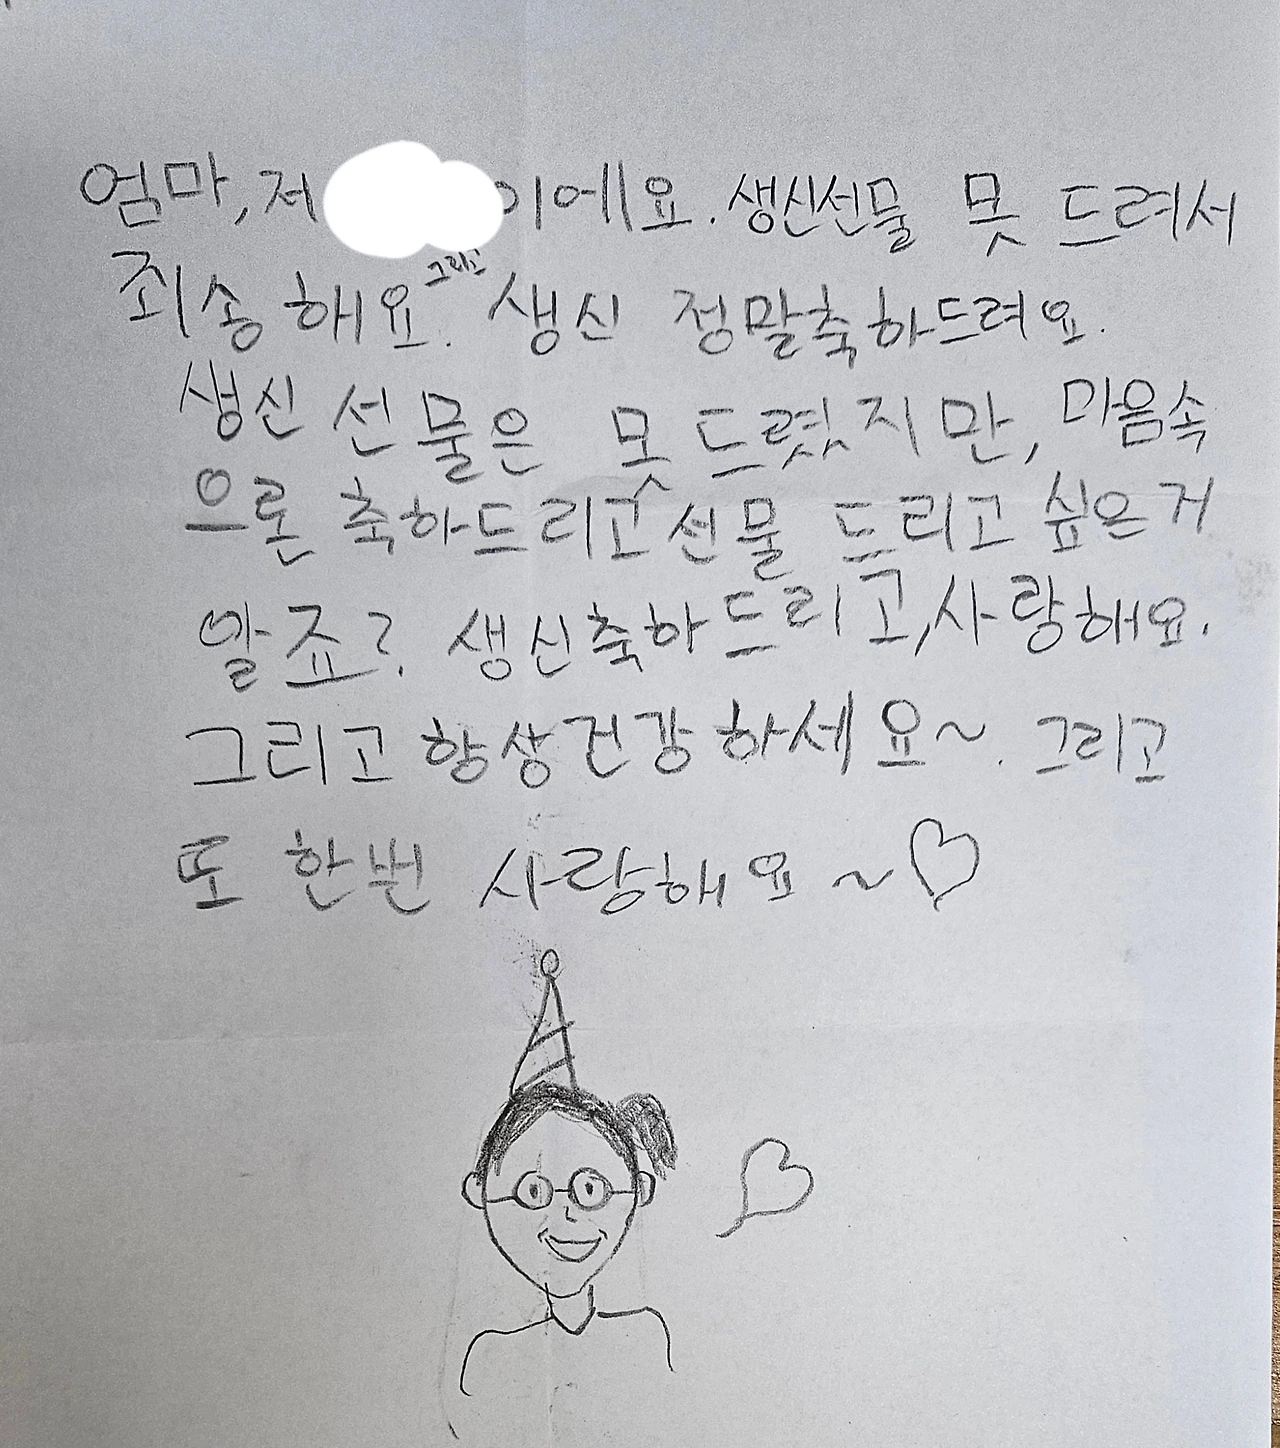 엄마, 저 이에요. 생신선물 못 드려서
죄송해요. 그리고 생신 정말축하드려요.
생신 선물은 못 드렸지만, 마음속
으론 축하드리고 선물 드리고 싶은거
알죠? 생신축하드리고, 사랑해요.
그리고 항상건강하세요~. 그리고
또 한번 사랑해요~♡